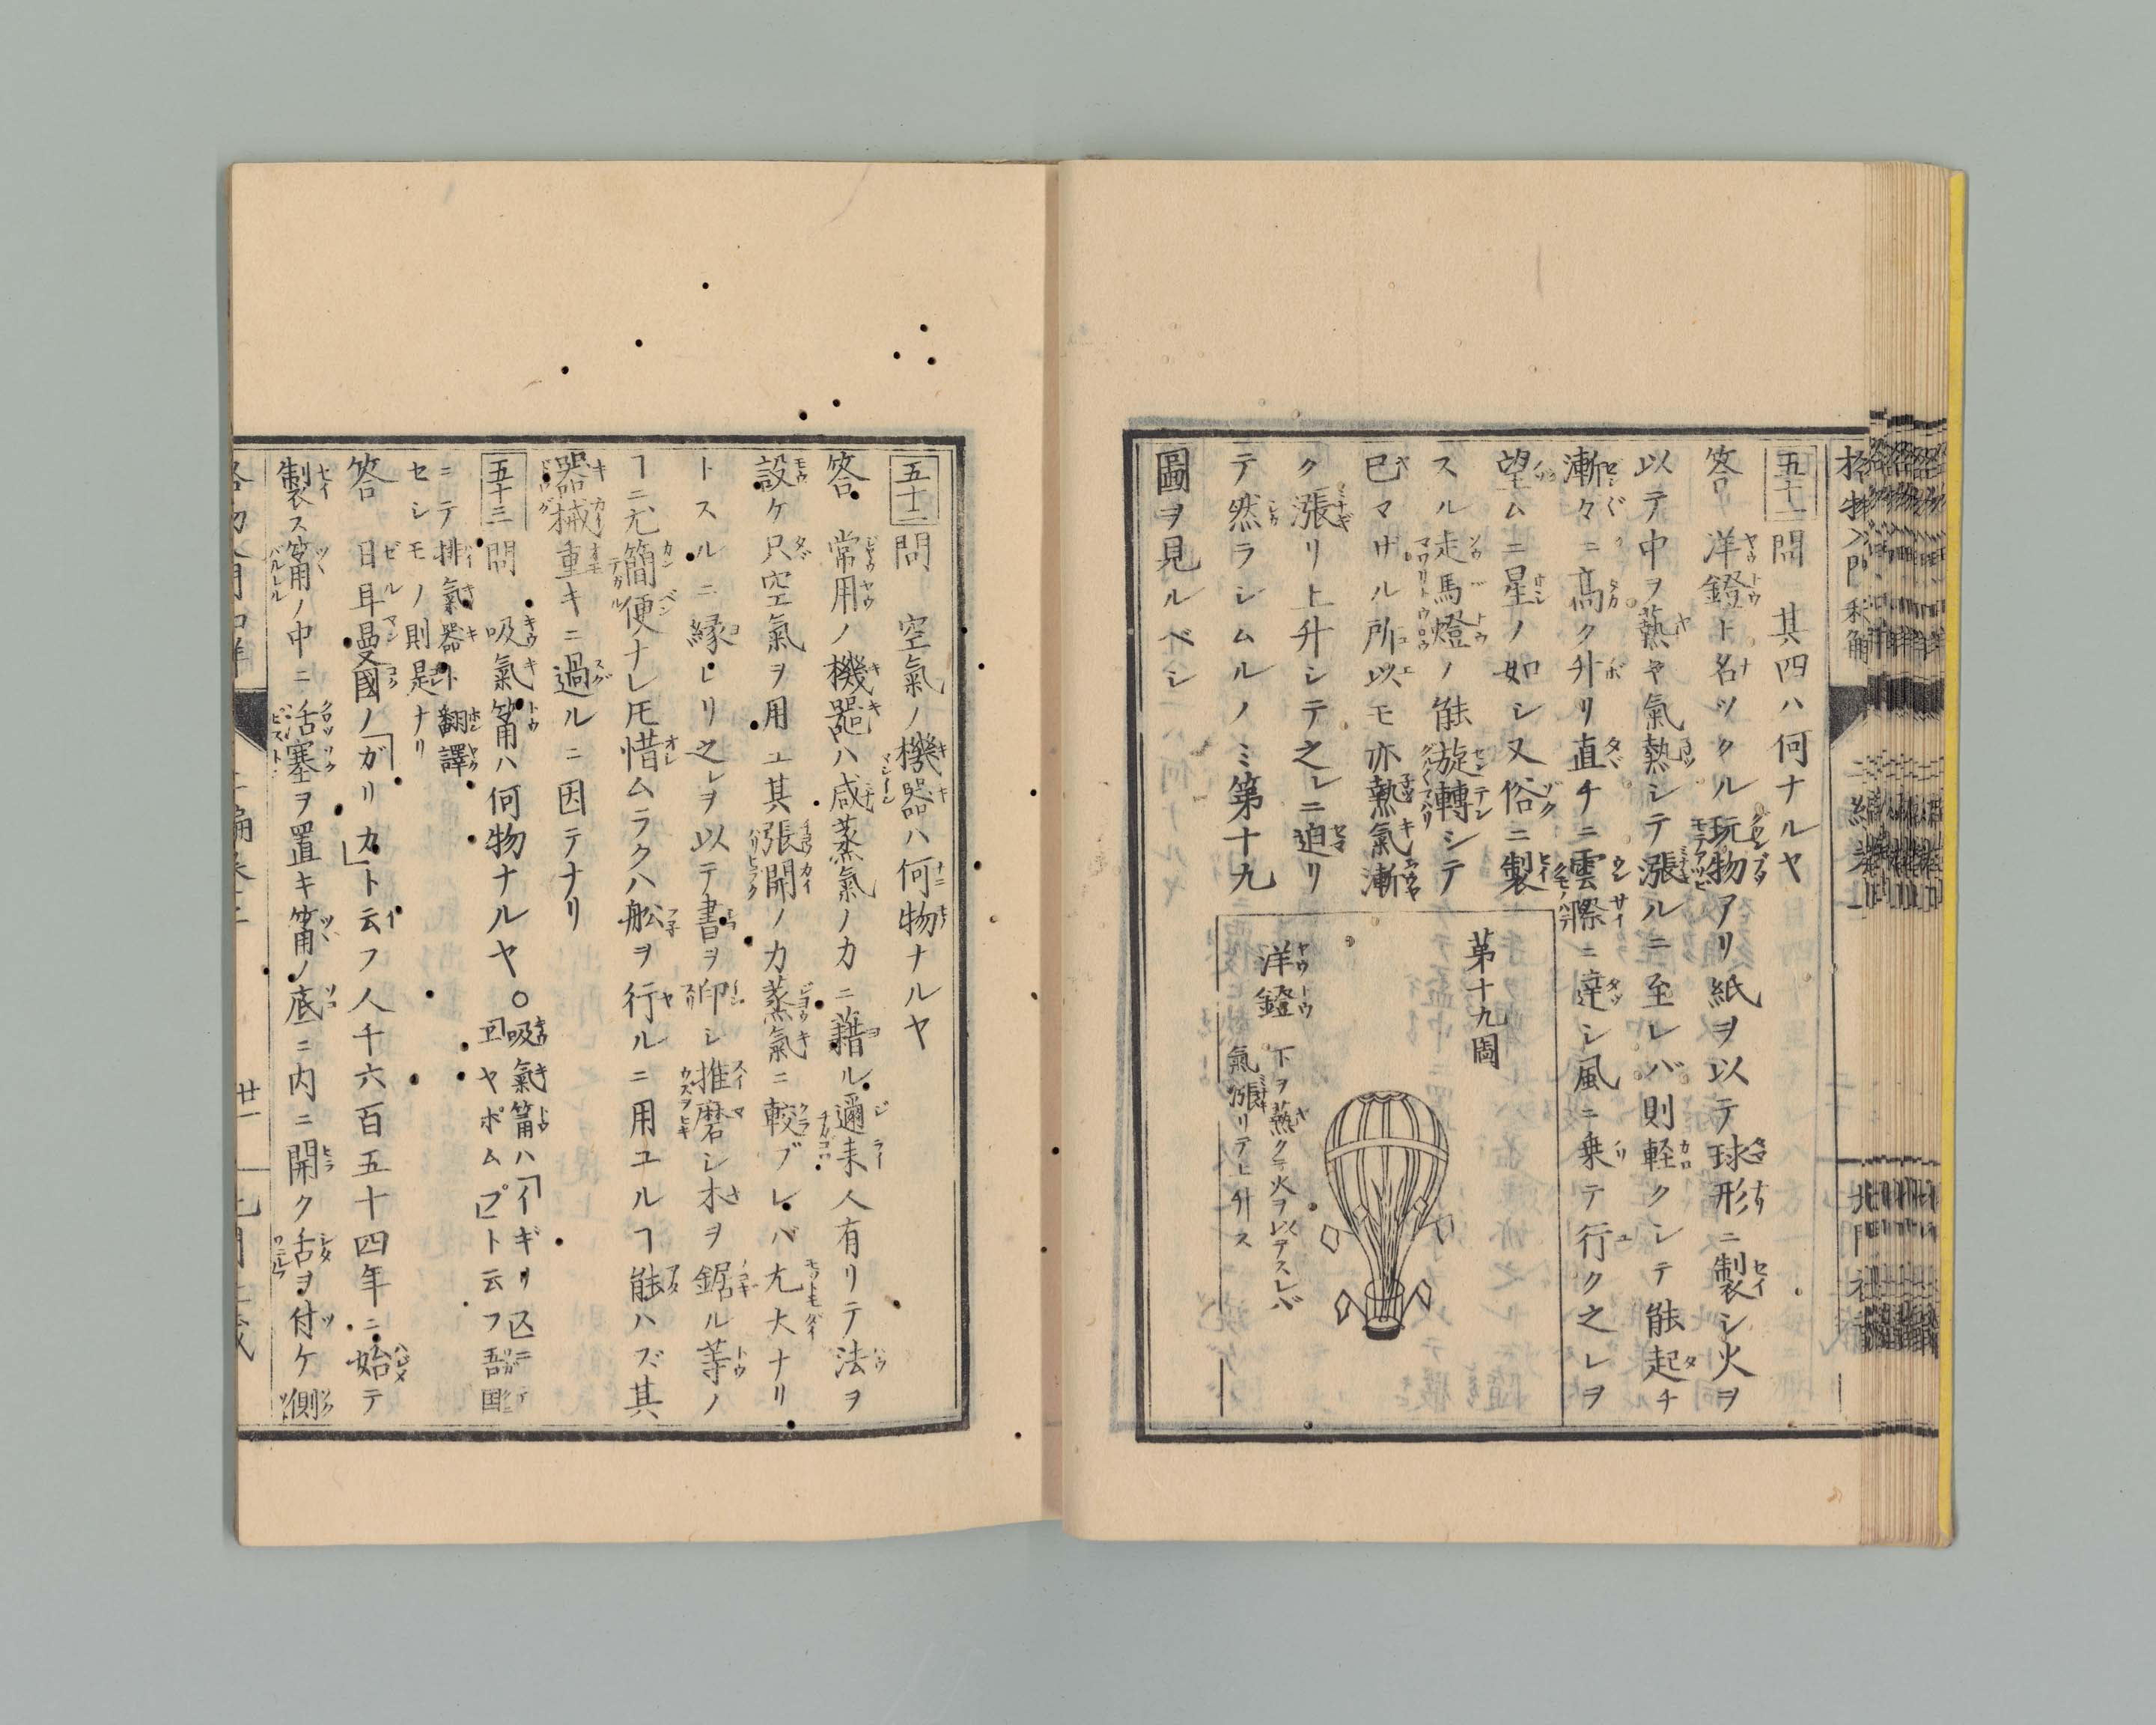 五十一 問 其四ハ何ナルヤ
答 洋鐙ト名ツクル玩物アリ紙ヲ以テ球形ニ製シ火ヲ
以テ中ヲ爇ヤ氣熱シテ漲ルニ至レバ則軽クシテ能起チ
漸々ニ高ク升リ直チニ雲際ニ達シ風ニ乗テ行ク之レヲ
望ムニ星ノ如シ又俗ニ製
スル走馬燈ノ能旋轉シテ
已マザル所以モ亦熱氣漸
ク漲リ上升シテ之レニ迫リ
テ然ラシムルノミ第十九
圖ヲ見ルベシ
第十九圖
洋鐙
下ヲ爇クニ火ヲ以テスレバ
氣漲リテ上升ス
五十二 問 空氣ノ機器ハ何物ナルヤ
答 常用ノ機器ハ咸蒸氣ノ力ニ藉ル邇来人有リテ法ヲ
設ケ只空氣ヲ用ユ其張開ノ力蒸氣ニ較ブレバ尤大ナリ
トスルニ縁レリ之レヲ以テ書ヲ印シ推磨シ木ヲ鋸ル等ノ
ヿニ尤簡便ナレ𪜈惜ムラクハ舩ヲ行ルニ用ユルヿ能ハズ其
器械重キニ過ルニ因テナリ
五十三 問 吸氣筩ハ何物ナルヤ○吸氣筩ハ「イギリス」ニテ
「ヱヤポムプ」ト云フ吾国
ニテ排氣器ト翻譯
セシモノ則是ナリ
答 日耳曼國ノ「ガリカ」ト云フ人千六百五十四年ニ始テ
製ス筩ノ中ニ活塞ヲ置キ筩ノ底ニ内ニ開ク舌ヲ付ケ側
廿一